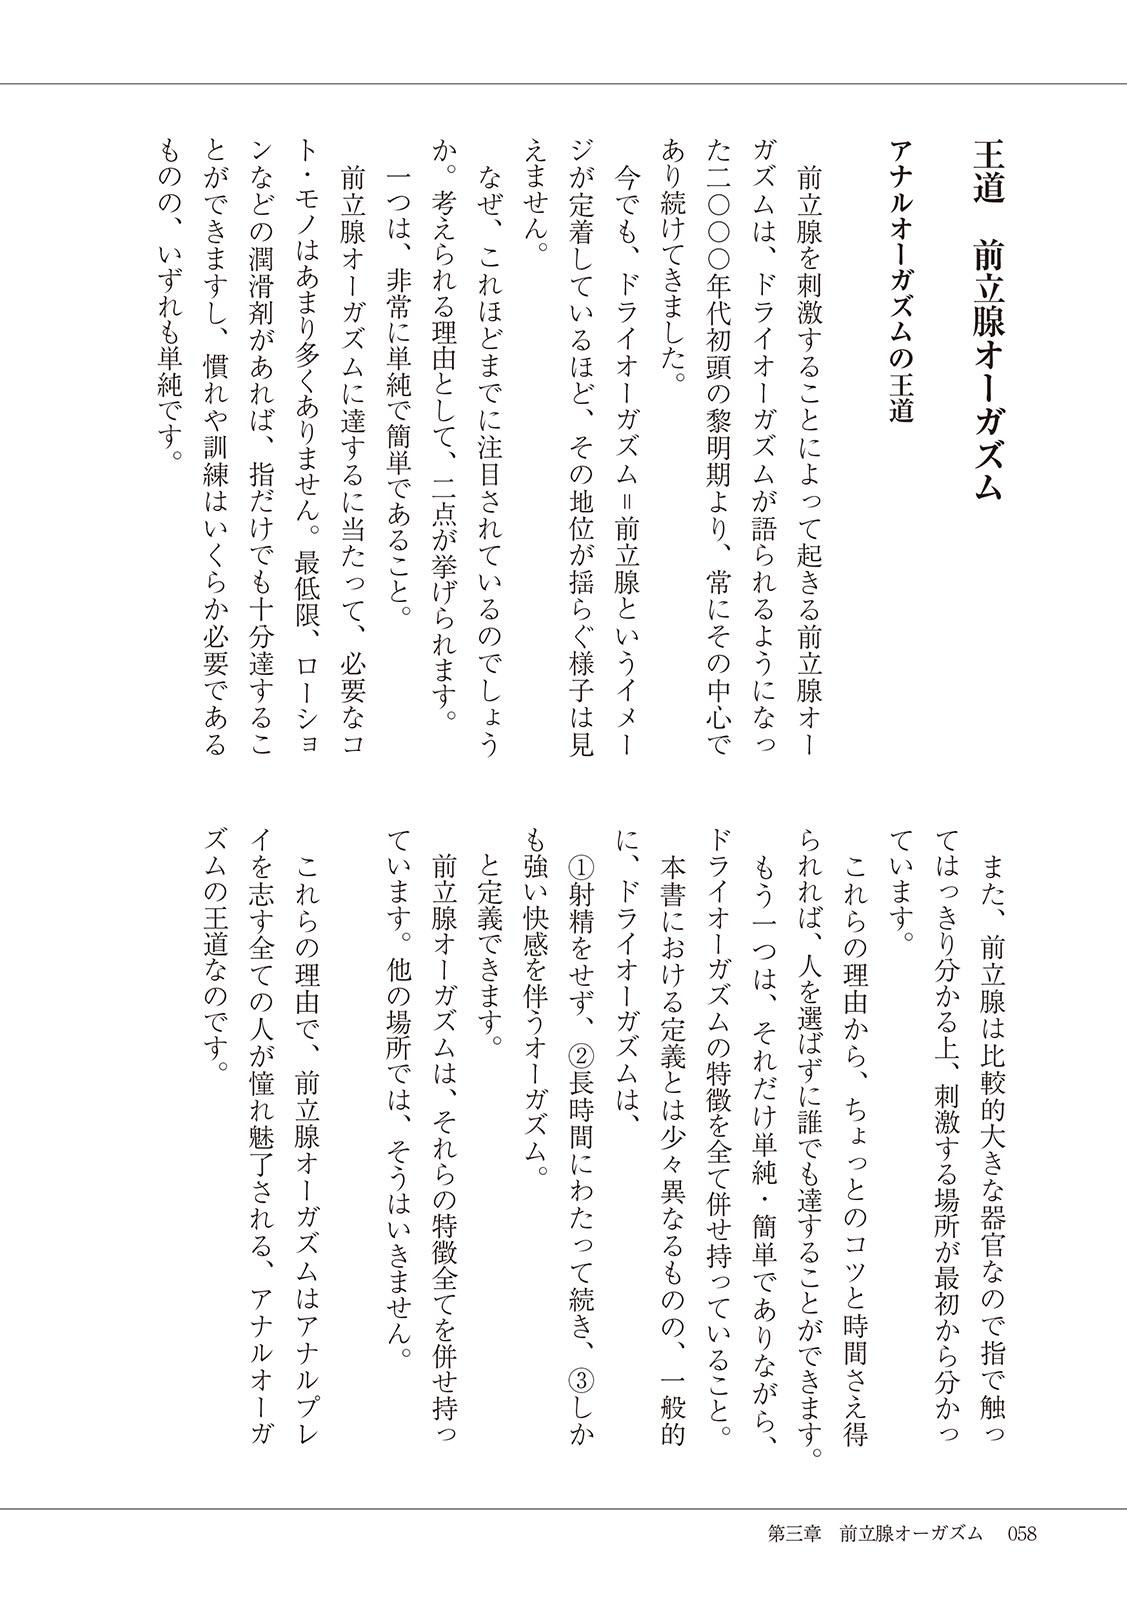 王道　前立腺オーガズム
アナルオーガズムの王道
　前立腺を刺激することによって起きる前立腺オー
ガズムは、ドライオーガズムが語られるようになっ
た二〇〇〇年代初頭の黎明期より、常にその中心で
あり続けてきました。
　今でも、ドライオーガズム＝前立腺というイメー
ジが定着しているほど、その地位が揺らぐ様子は見
えません。
　なぜ、これほどまでに注目されているのでしょう
か。考えられる理由として、二点が挙げられます。
　一つは、非常に単純で簡単であること。
　前立腺オーガズムに達するに当たって、必要なコ
ト・モノはあまり多くありません。最低限、ローショ
ンなどの潤滑剤があれば、指だけでも十分達するこ
とができますし、慣れや訓練はいくらか必要である
ものの、いずれも単純です。
　また、前立腺は比較的大きな器官なので指で触っ
てはっきり分かる上、刺激する場所が最初から分かっ
ています。
　これらの理由から、ちょっとのコツと時間さえ得
られれば、人を選ばずに誰でも達することができます。
　もう一つは、それだけ単純・簡単でありながら、
ドライオーガズムの特徴を全て併せ持っていること。
　本書における定義とは少々異なるものの、一般的
に、ドライオーガズムは、
　①射精をせず、②長時間にわたって続き、③しか
も強い快感を伴うオーガズム。
　と定義できます。
　前立腺オーガズムは、それらの特徴全てを併せ持っ
ています。他の場所では、そうはいきません。
　これらの理由で、前立腺オーガズムはアナルプレ
イを志す全ての人が憧れ魅了される、アナルオーガ
ズムの王道なのです。
第三章　前立腺オーガズム　058